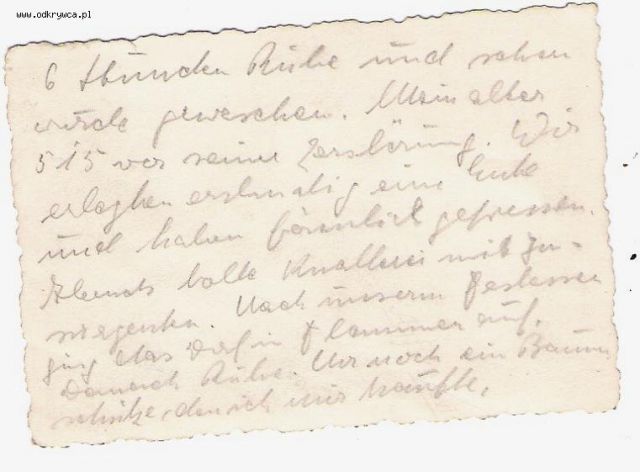 www.odkrywca.pl
6 Stunden Ruhe und schon
wurde gewaschen. Mein alter
515 vor seiner Zerstörung. Wir
erlegten erstmalig eine Ente
und haben förmlich gefressen.
Abends tolle Knallerei mit In-
surgenten. Nach unserm Festessen
ging das Dorf in Flammen auf.
Danach Ruhe. Nur noch ein Baum
schütze, den ich mir kaufte.